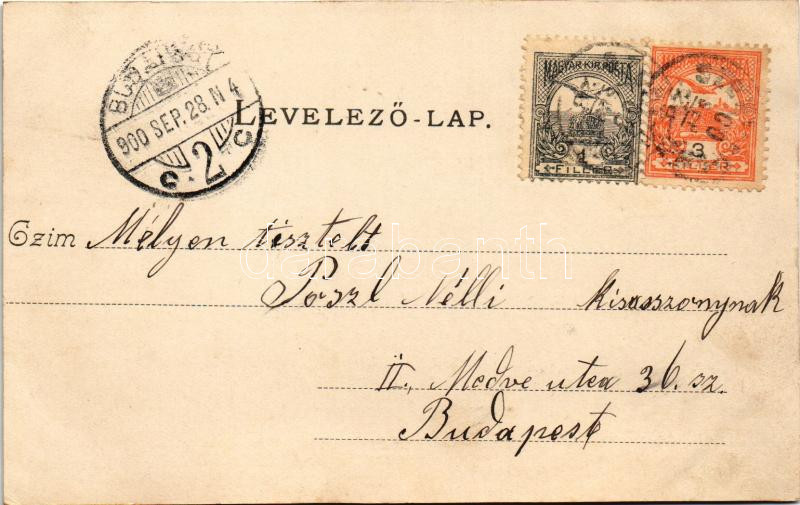 BUDAPEST
900 SEP. 28. N 4
2
MAGYAR KIR. POSTA
1
FILLÉR
3
FILLÉR
LEVELEZŐ-LAP.
Czim Mélyen tisztelt
Poszl Nélli kisasszonynak
II., Medve utca 36. sz.
Budapest
darabanth